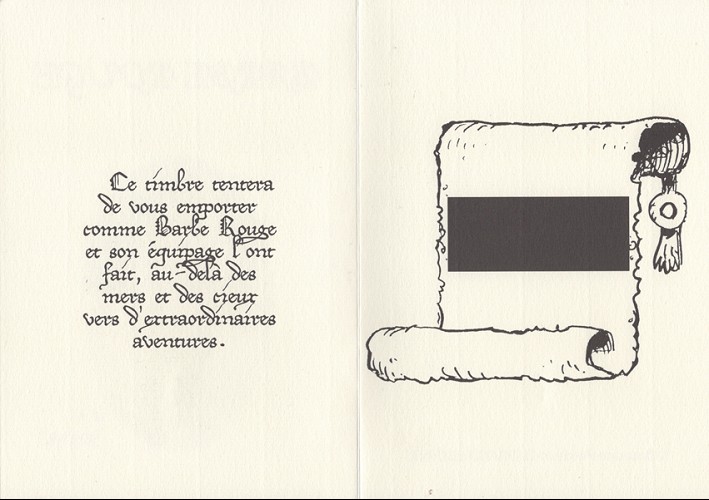 Ce timbre tentera
de vous emporter
comme Barbe Rouge
et son équipage l'ont
fait, au-delà des
mers et des cieux
vers d'extraordinaires
aventures.